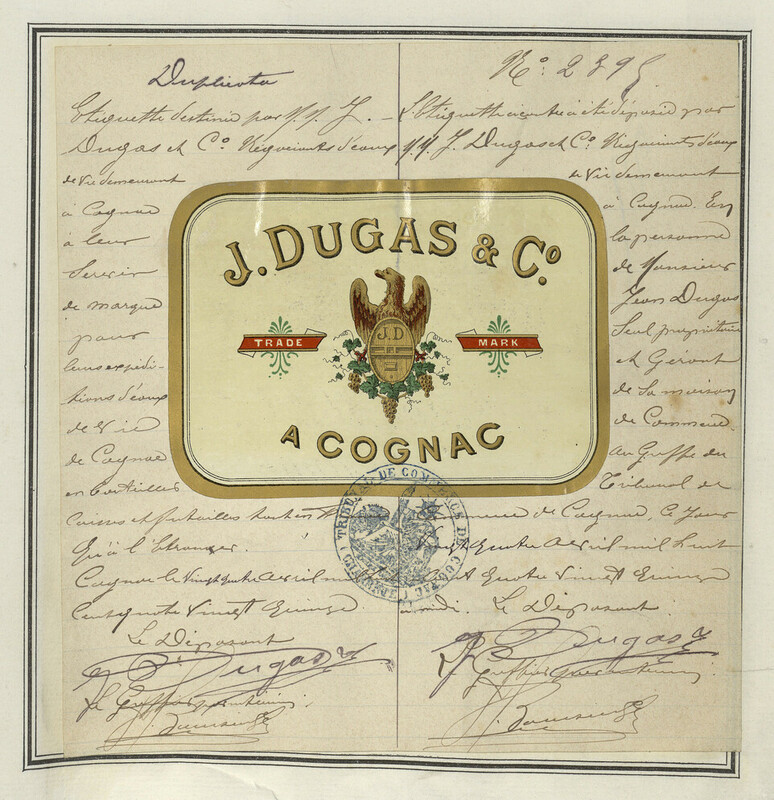 Duplicata
Etiquette destinée par M.M. J.
Dugas et Co. Négociants d'eaux
de Vie demeurant
à Cognac
à leur
Servir
de marque
pour
leurs expédi-
tions d'eaux
de Vie
de Cognac
en bouteilles
Caisses et futailles tant en
qu'à l'Etranger.
Cognac le Vingt quatre avril mil
Cent quatre Vingt Quinze
Le Déposant
J. Dugas & Co
Le Greffier
No: 2395
L'Etiquette ci contre a été déposée par
M.M. J. Dugas et Co. Négociants d'eaux
de Vie demeurant
à Cognac. En
la personne
de Monsieur
Jean Dugas
Seul propriétaire
et Gérant
de sa maison
de Commerce
Au Greffe du
Tribunal de
Commerce de Cognac, ce Jour
Vingt quatre avril mil huit
Cent quatre Vingt Quinze
à midi. Le Déposant
J. Dugas & Co
Le Greffier
J. DUGAS & Co.
J.D
TRADE MARK
A COGNAC
TRIBUNAL DE COMMERCE DE COGNAC (CHARENTE)